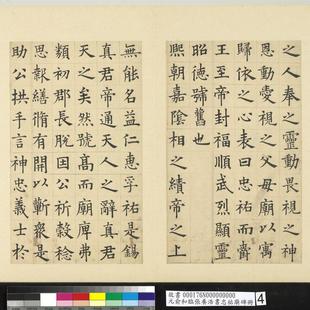 之人奉之靈動畏視之神
恩動愛視之父母廟以寓
歸依之心表曰忠祐而齋
王至帝封福順武烈顯靈
昭德號舊也
熙朝嘉隂相之績帝之上
無能名益仁惠孚祐是錫
真君帝通天人之辭真君
天之矣然號髙而廟庳弗
類初郡長脫因公祈榖稔
思報繕脩有開以蘄衆是
助公拱手言神忠義士於
故書000176N000000000
元俞和臨張養浩書忠祐廟碑冊
4